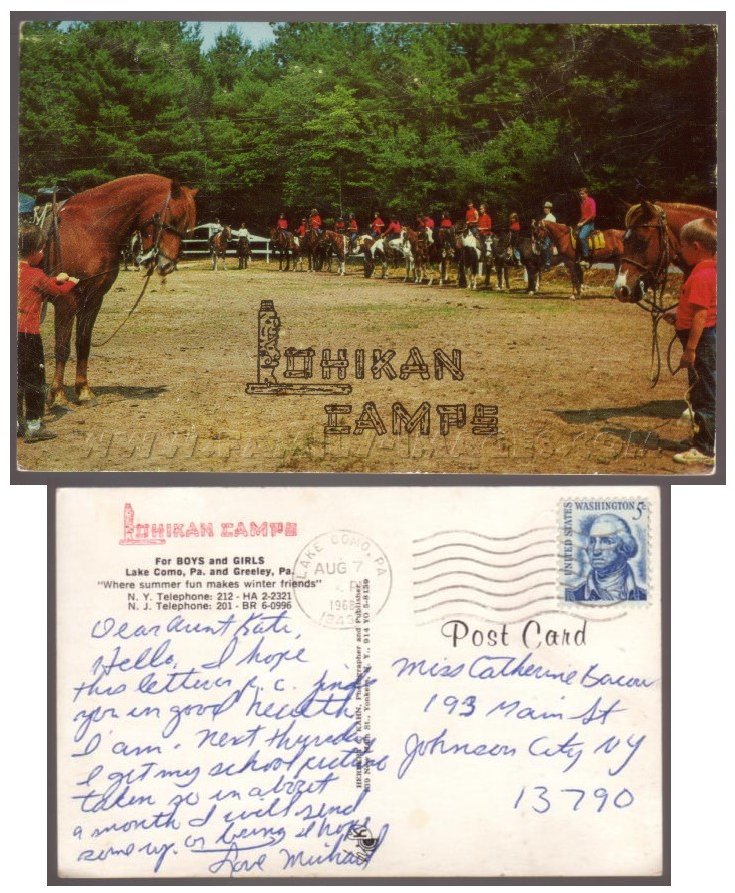 LOHIKAN
CAMPS
WWW.FAMILY-IMAGES.COM
LOHIKAN CAMPS
For BOYS and GIRLS
Lake Como, Pa. and Greeley, Pa.
"Where summer fun makes winter friends"
N. Y. Telephone: 212 - HA 2-2321
N. J. Telephone: 201 - BR 6-0996
Dear Aunt Kate,
Hello, I hope
this letter p.c. finds
you in good health
I am. Next thursday
I get my school picture
taken so in about
a month I will send
some up. or bring I hope
Love Michael
HERBERT C KAHN, Photographer and Publisher,
Main St., Yonkers, N. Y., 914 YO 5-8159
LAKE COMO, PA
AUG 7
1968
18431
UNITED STATES
WASHINGTON 5c
Post Card
Miss Catherine Bacon
193 Main St
Johnson City NY
13790